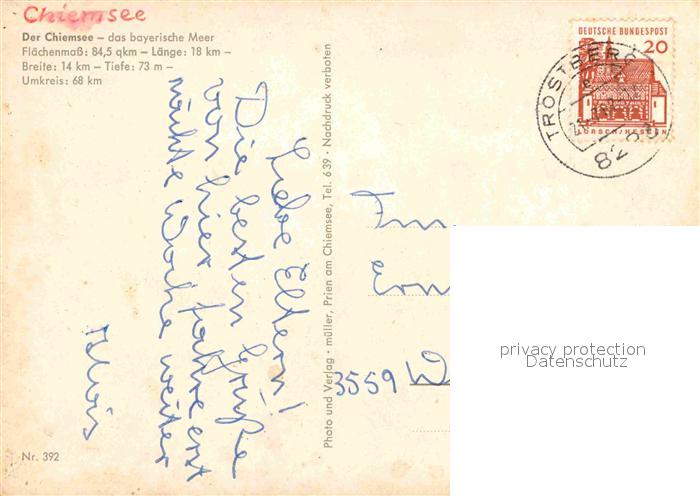 Chiemsee
Der Chiemsee – das bayerische Meer
Flächenmaß: 84,5 qkm – Länge: 18 km –
Breite: 14 km – Tiefe: 73 m –
Umkreis: 68 km
Liebe Eltern!
Die besten Grüße
von hier fahre erst
nächte Woche weiter
Alois
Nr. 392
Photo und Verlag · müller, Prien am Chiemsee, Tel. 639 · Nachdruck verboten
DEUTSCHE BUNDESPOST
20
LORSCH/HESSEN
TROSTBERG
Fam.
3559 W
privacy protection
Datenschutz